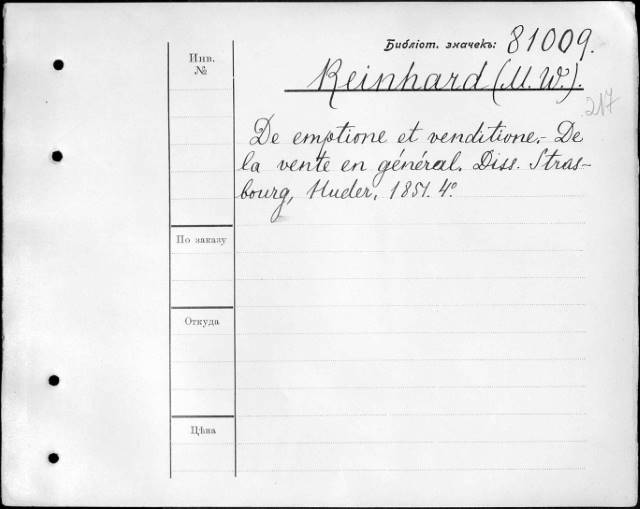 Библіот. значекъ: 81009.
Инв.
№
Reinhard (M. W.).
217
De emptione et venditione.- De
la vente en général. Diss. Stras-
bourg, Huder, 1851. 4º
По заказу
Откуда
Цѣна